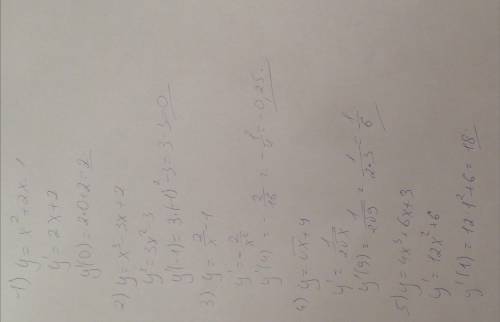 1) y = x² + 2x - 1
y' = 2x + 2
y'(0) = 2·0+2 = 2
2) y = x³ - 3x + 2
y' = 3x² - 3
y'(-1) = 3·(-1)² - 3 = 3 - 3 = 0
3) y = 2/x - 1
y' = - 2/x²
y'(4) = - 2/16 = - 1/4 = -0,25.
4) y = √x + 4
y' = 1/2√x
y'(9) = 1/2√9 = 1/2·3 = 1/6
5) y = 4x³ + 6x + 3
y' = 12x² + 6
y'(1) = 12·1² + 6 = 18.